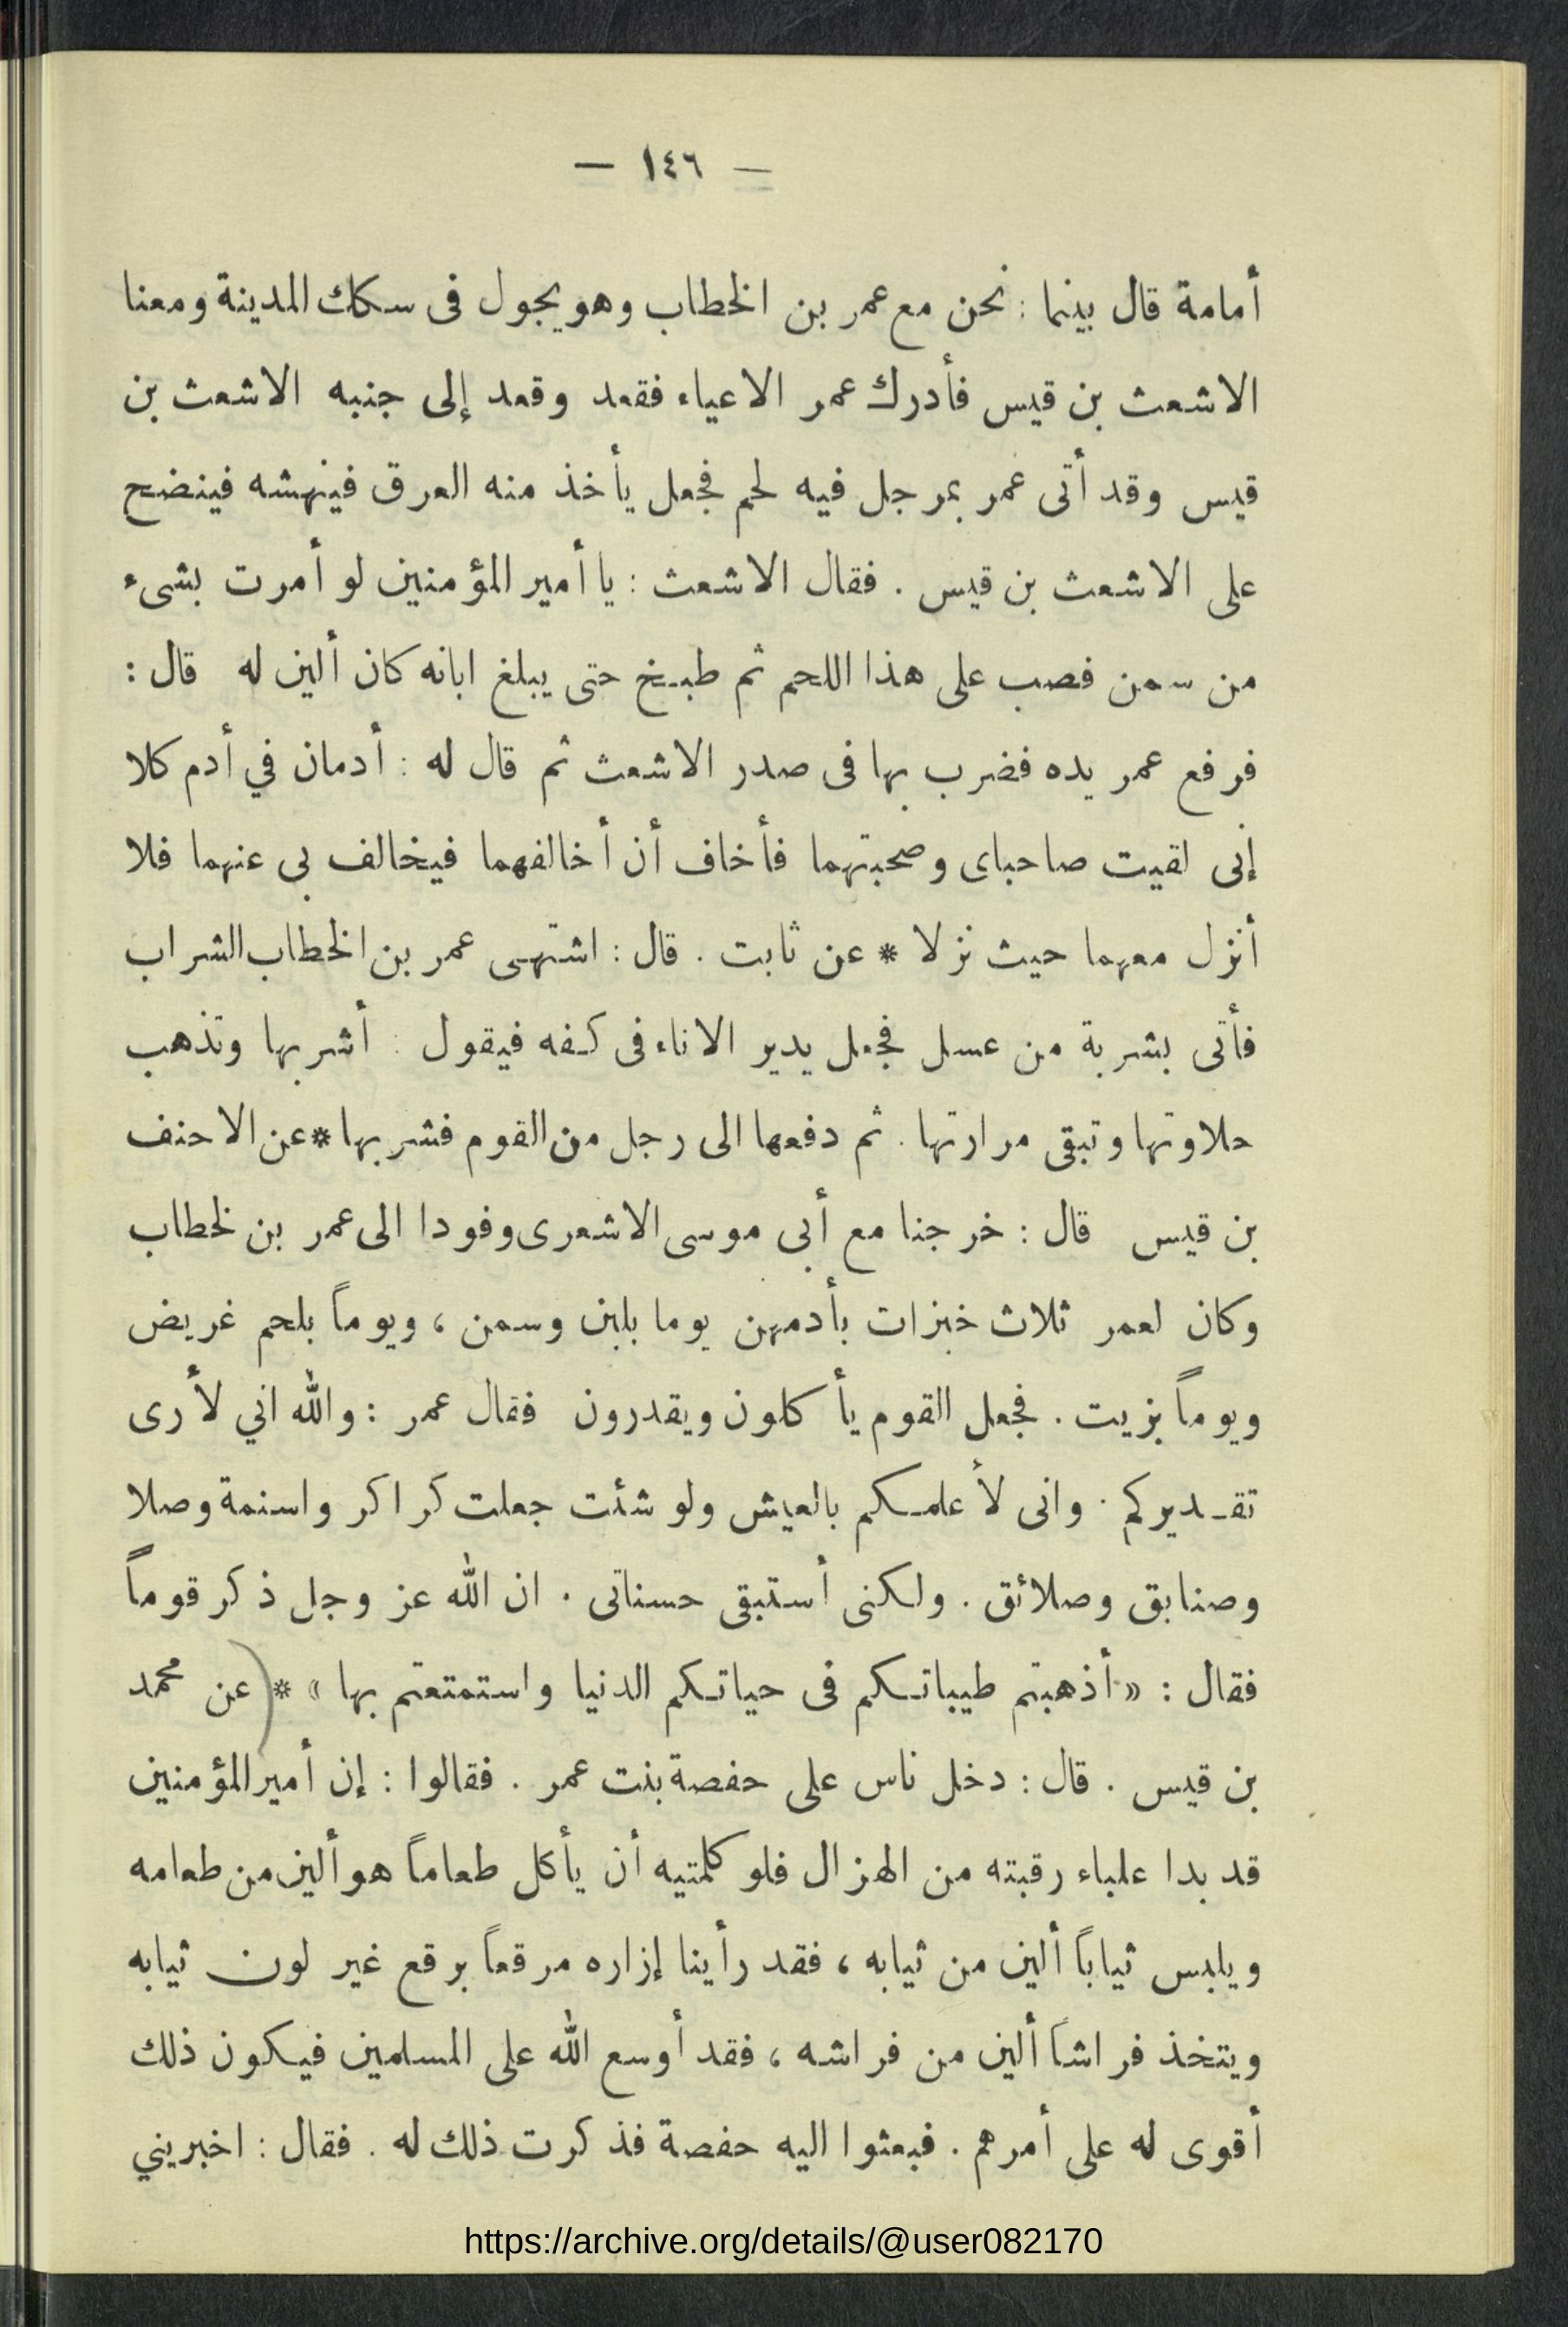 — ١٤٦ —
أمامة قال بينما : نحن مع عمر بن الخطاب وهو يجول فى سكك المدينة ومعنا
الاشعث بن قيس فأدرك عمر الاعياء فقعد وقعد إلى جنبه الاشعث بن
قيس وقد أتى عمر بمرجل فيه لحم فجعل يأخذ منه العرق فينهشه فينضح
على الاشعث بن قيس . فقال الاشعث : يا أمير المؤمنين لو أمرت بشىء
من سمن فصب على هذا اللحم ثم طبخ حتى يبلغ ابانه كان ألين له قال :
فرفع عمر يده فضرب بها فى صدر الاشعث ثم قال له : أدمان في أدم كلا
إنى لقيت صاحباى وصحبتهما فأخاف أن أخالفهما فيخالف بى عنهما فلا
أنزل معهما حيث نزلا * عن ثابت . قال : اشتهى عمر بن الخطاب الشراب
فأتى بشربة من عسل فجعل يدير الاناء فى كفه فيقول : أشربها وتذهب
حلاوتها وتبقى مرارتها . ثم دفعها الى رجل من القوم فشربها * عن الاحنف
بن قيس قال : خرجنا مع أبى موسى الاشعرى وفودا الى عمر بن لخطاب
وكان لعمر ثلاث خبزات بأدمهن يوما بلبن وسمن ، ويوماً بلحم غريض
ويوماً بزيت . فجعل القوم يأكلون ويقدرون فقال عمر : والله اني لأرى
تقديركم . وانى لأعلمكم بالعيش ولو شئت جعلت كراكر واسنمة وصلا
وصنابق وصلائق . ولكنى أستبقى حسناتى . ان الله عز وجل ذكر قوماً
فقال : « أذهبتم طيباتكم فى حياتكم الدنيا واستمتعتم بها » * (عن محمد
بن قيس . قال : دخل ناس على حفصة بنت عمر . فقالوا : إن أمير المؤمنين
قد بدا علباء رقبته من الهزال فلو كلمتيه أن يأكل طعاماً هو ألين من طعامه
ويلبس ثياباً ألين من ثيابه ، فقد رأينا إزاره مرقعاً برقع غير لون ثيابه
ويتخذ فراشاً ألين من فراشه ، فقد أوسع الله على المسلمين فيكون ذلك
أقوى له على أمرهم . فبعثوا اليه حفصة فذكرت ذلك له . فقال : اخبريني
https://archive.org/details/@user082170